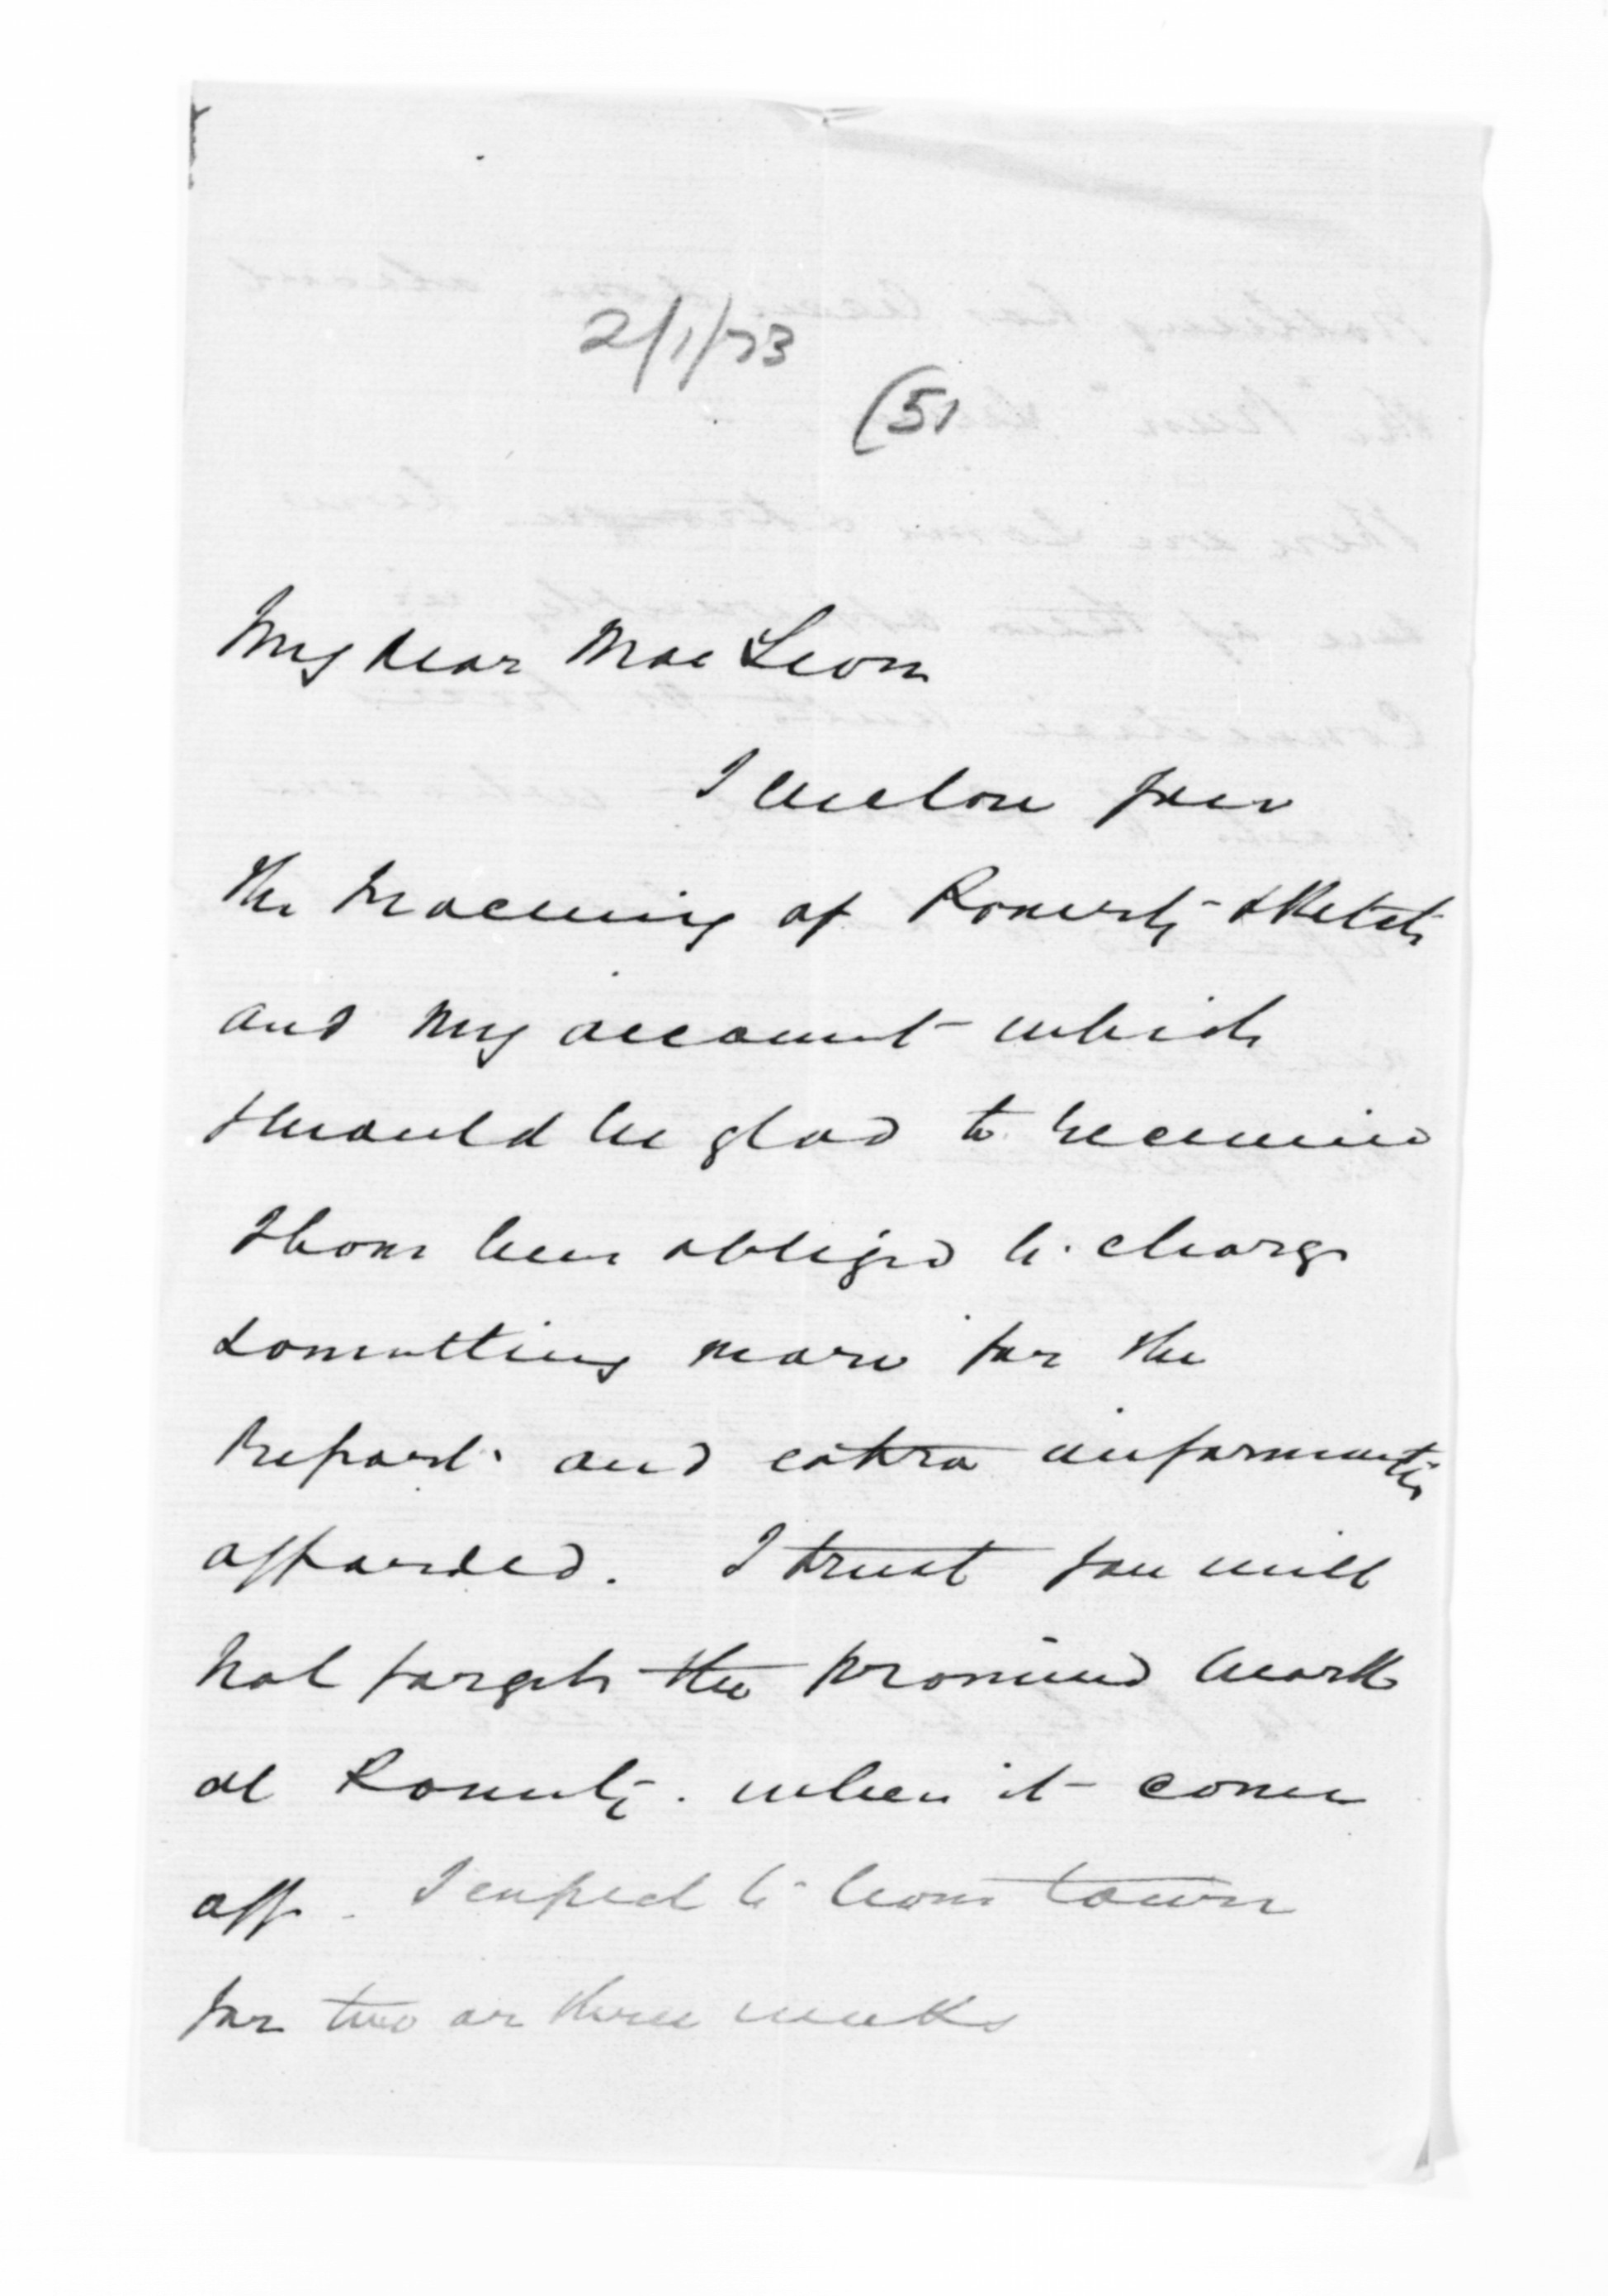 2/1/73
(51
My dear MacLean
I enclose you
the tracing of Roberts sketch
and my account which
I should be glad to receive
I have been obliged to charge
something more for the
Report and extra information
afforded. I trust you will
not forget the promised work
at when it comes
off. I expect to leave town
for two or three weeks